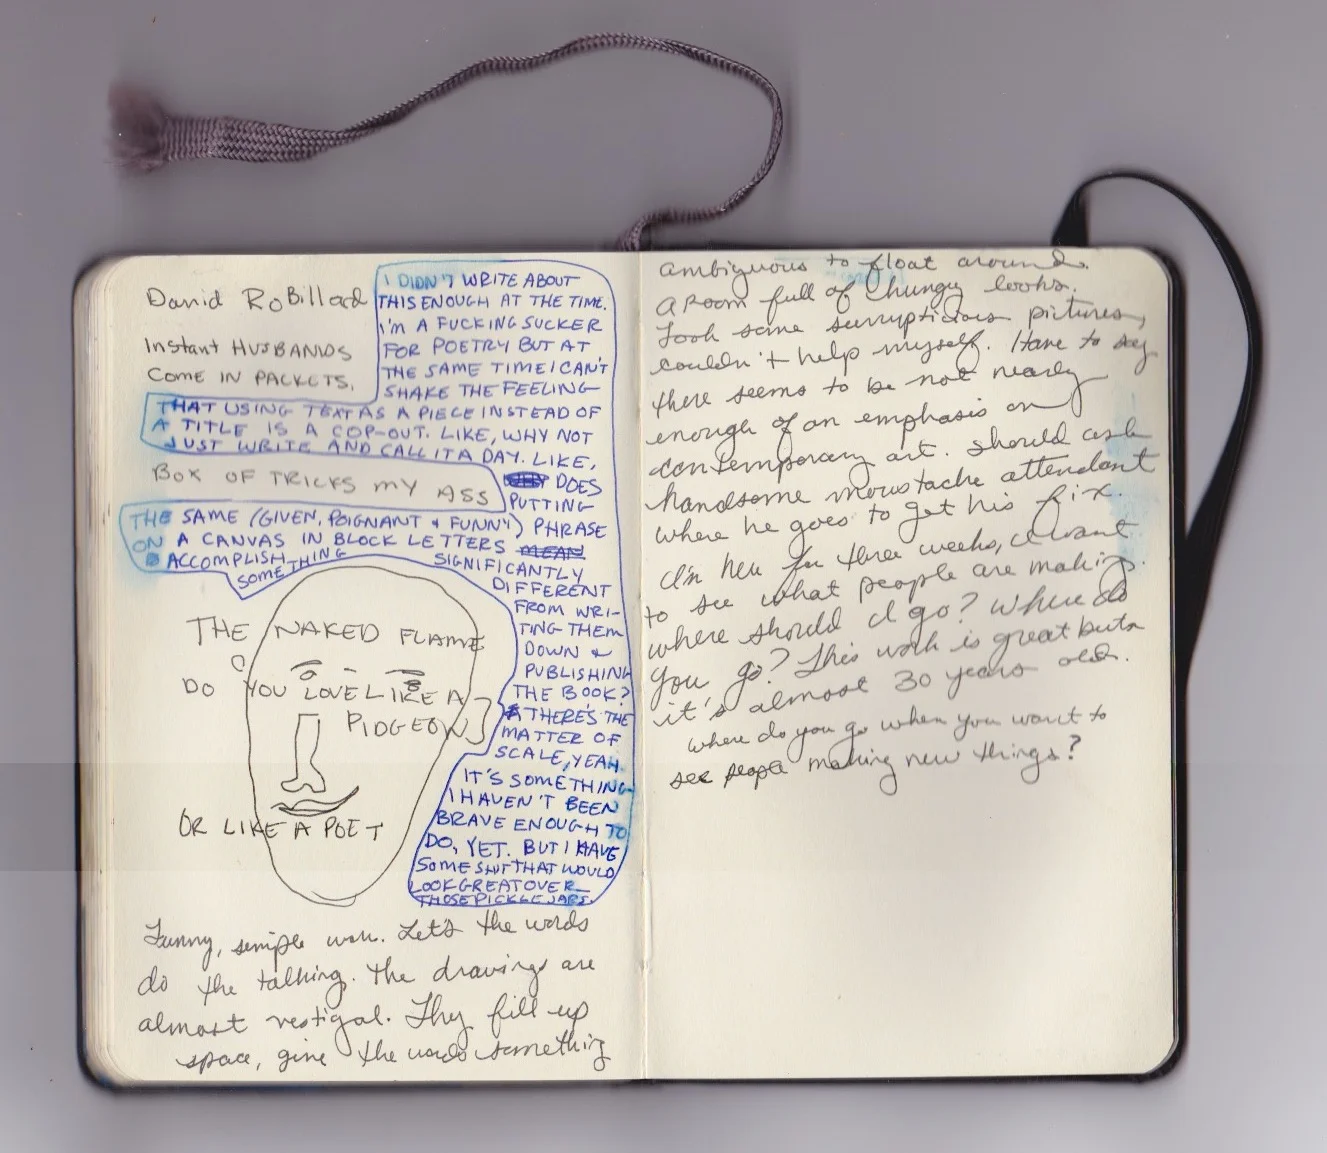 David RoBillard
Instant HUSBANDS
COME IN PACKETS.
BOX OF TRICKS MY ASS
THE NAKED FLAME
DO YOU LOVE LIKE A
PIDGEON
OR LIKE A POET
I DIDN'T WRITE ABOUT
THIS ENOUGH AT THE TIME.
I'M A FUCKING SUCKER
FOR POETRY BUT AT
THE SAME TIME I CAN'T
SHAKE THE FEELING
THAT USING TEXT AS A PIECE INSTEAD OF
A TITLE IS A COP-OUT. LIKE, WHY NOT
JUST WRITE AND CALL IT A DAY. LIKE,
DOES
PUTTING
THE SAME (GIVEN, POIGNANT & FUNNY) PHRASE
ON A CANVAS IN BLOCK LETTERS MEAN
ACCOMPLISH SOMETHING SIGNIFICANTLY
DIFFERENT
FROM WRI-
TING THEM
DOWN &
PUBLISHING
THE BOOK?
THERE'S THE
MATTER OF
SCALE, YEAH.
IT'S SOMETHING
I HAVEN'T BEEN
BRAVE ENOUGH TO
DO, YET. BUT I HAVE
SOME SHIT THAT WOULD
LOOK GREAT OVER
THOSE PICKLE JARS.
Funny, simple work. Let's the words
do the talking. The drawings are
almost vestigal. They fill up
space, give the words something
ambiguous to float around.
A room full of hungry looks.
Took some surrupticious pictures,
couldn't help myself. Have to say
there seems to be not nearly
enough of an emphasis on
contemporary art. Should ask
handsome moustache attendant
where he goes to get his fix.
I'm here for three weeks, I want
to see what people are making.
where should I go? Where do
you go? This work is great but
it's almost 30 years old.
where do you go when you want to
see people making new things?